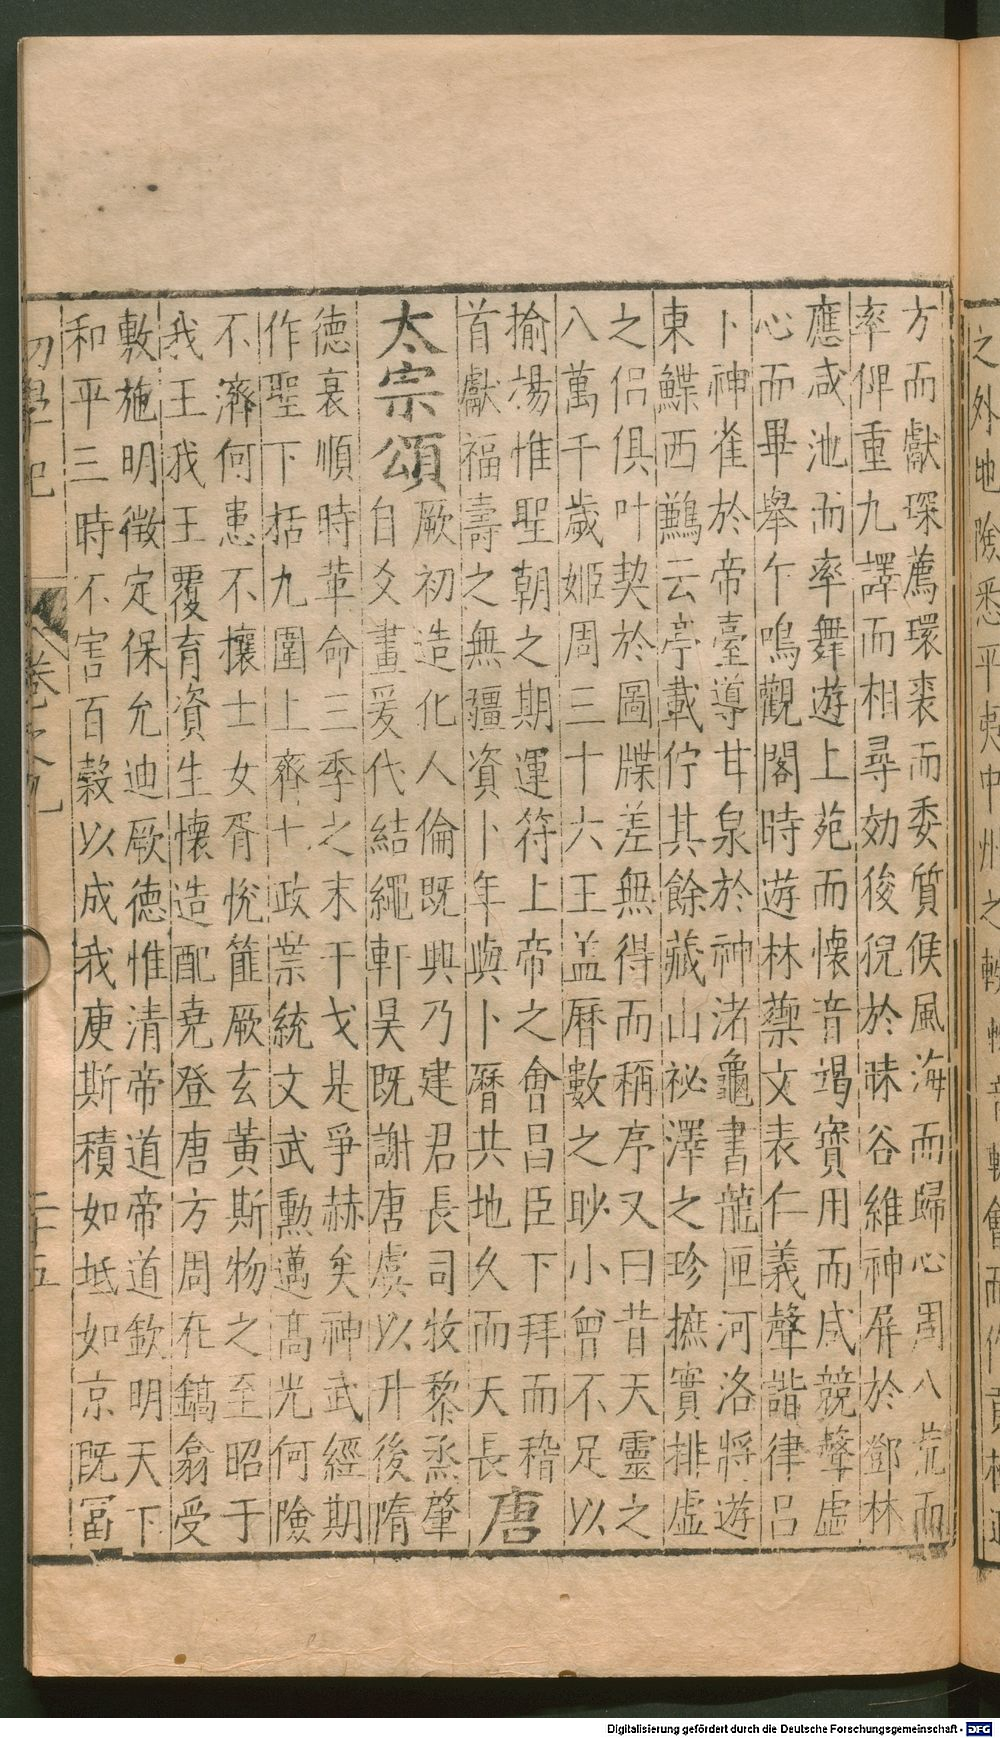 之外地隩悉平夷中州之
方而獻琛薦環裘而委質候風海而歸心周八荒而
率俾重九譯而相尋効後猊於昧谷維神屏於鄧林
應咸池而率舞遊上苑而懷音竭寳用而咸競聲虛
心而畢舉乍鳴觀閣時遊林藪文表仁義聲諧律呂
卜神雀於帝臺導甘泉於神渚龜書龍匣河洛將遊
東鰈西鶼云亭載佇其餘藏山祕澤之珍摭實排虛
之侣俱叶契於圖牒差無得而稱序又曰昔天靈之
八萬千歲姬周三十六王盖曆數之眇小曾不足以
揄揚惟聖朝之期運符上帝之會昌臣下拜而稽
首獻福壽之無疆資卜年與卜曆共地久而天長
唐
太宗頌
厥初造化人倫既興乃建君長司牧黎烝肇
自爻畫爰代結繩軒昊既謝唐虞以升後隋
德衰順時革命三季之末干戈是爭赫矣神武經期
作聖下括九圍上齊七政業統文武勲邁髙光何險
不濟何患不攘士女胥悅篚厥玄黃斯物之至昭于
我王我王覆育資生懷造配堯登唐方周在鎬翕受
敷施明徵定保允迪厥德惟清帝道帝道欽明天下
和平三時不害百穀以成我庾斯積如坻如京既冨
初學記
卷之九
二十五
Digitalisierung gefördert durch die Deutsche Forschungsgemeinschaft - DFG